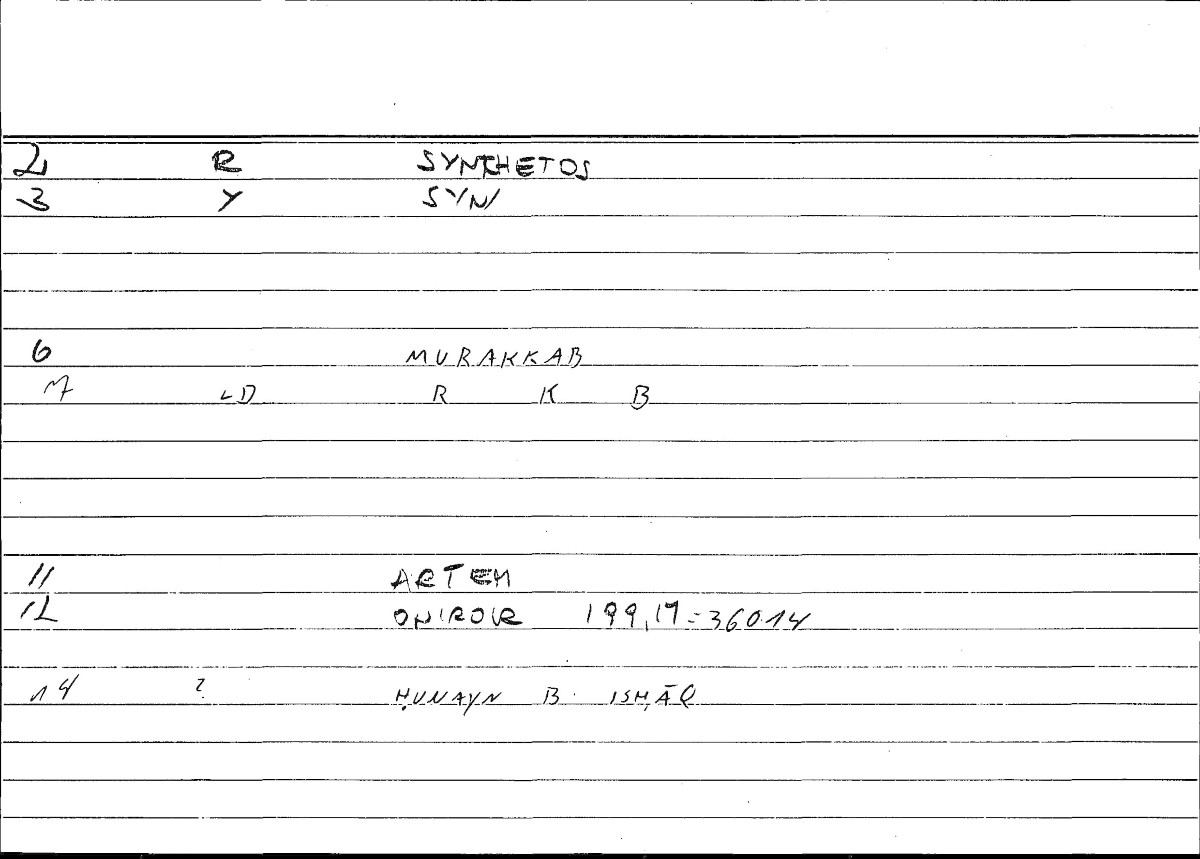 2 R SYNTHETOS
3 Y SYN/
6 MURAKKAB
7 LD R K B
11 ARTEM
12 ONIROCR 199,17=360.14
14 ? ḤUNAYN B. ISḤĀQ